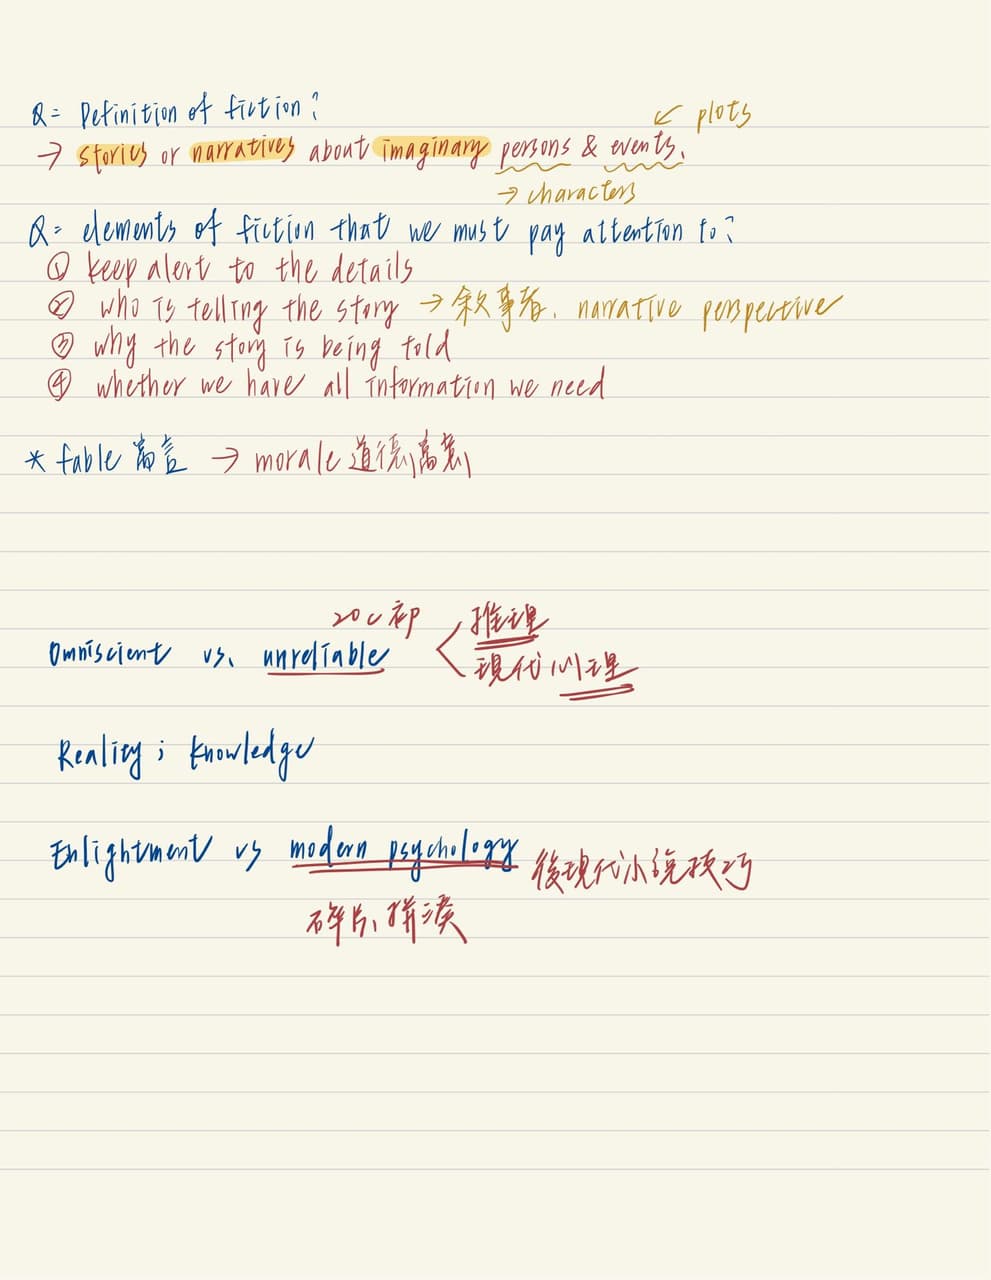 Q: Definition of fiction?
↙ plots
→ stories or narratives about imaginary persons & events.
→ characters
Q: elements of fiction that we must pay attention to?
① keep alert to the details
② who is telling the story → 敘事者. narrative perspective
③ why the story is being told
④ whether we have all information we need
* fable 寓言 → morale 道德寓意
20c初
推理
Omniscient vs. unreliable
現代心理
Reality ; knowledge
Enlightment vs modern psychology
後現代小說技巧
碎片、拼湊